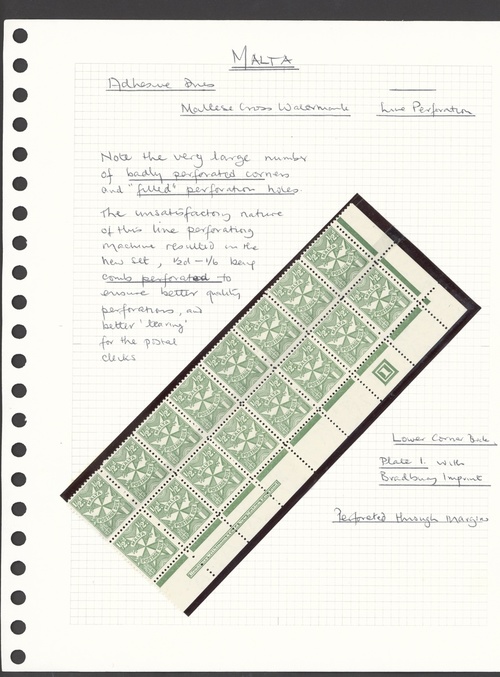 MALTA
Adhesive Dues
Maltese Cross Watermark Line Perforation
Note the very large number
of badly perforated corners
and "filled" perforation holes.
The unsatisfactory nature
of this line perforating
machine resulted in the
new set, ½d - 1/6 being
comb perforated to
ensure better quality
perforations, and
better 'tearing'
for the postal
clerks
Lower Corner Block,
Plate 1. with
Bradbury Imprint
Perforated through margins